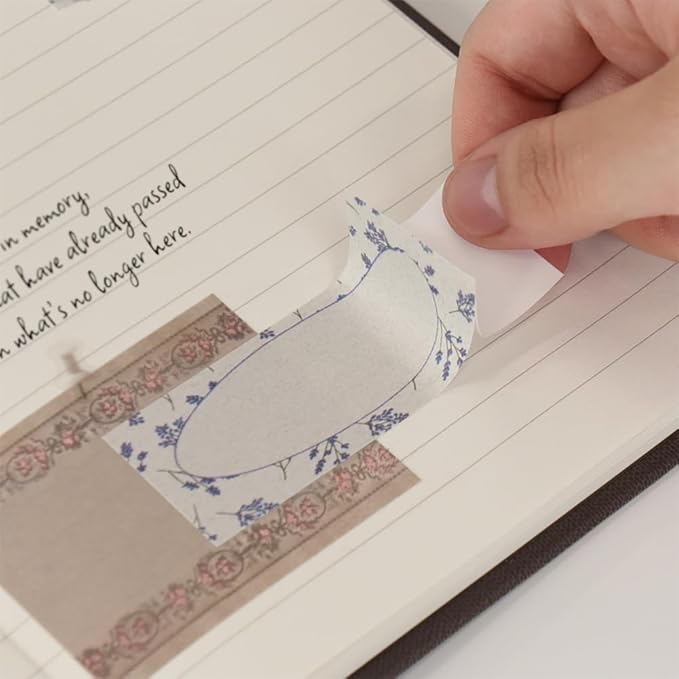 in memory,
at have already passed
n what's no longer here.